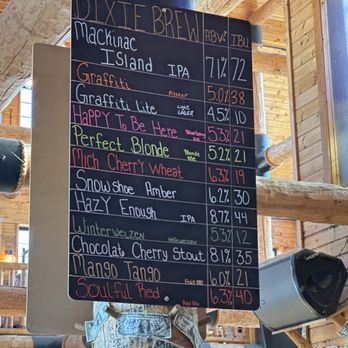 DIXIE BREW ABV% IBU
Mackinac
Island IPA 7.1% 72
Graffiti Pilsner 5.0% 38
Graffiti Lite Light Lager 4.5% 10
Happy To Be Here Blueberry 5.3% 21
Perfect Blonde Blonde Ale 5.2% 21
Mich Cherry Wheat 6.3% 19
Snowshoe Amber 6.2% 30
Hazy Enough IPA 8.7% 44
Winterweizen Hefeweizen 5.3% 12
Chocolat Cherry Stout 8.1% 35
Mango Tango Fruit 6.0% 21
Soulful Red Red Ale 6.3% 40